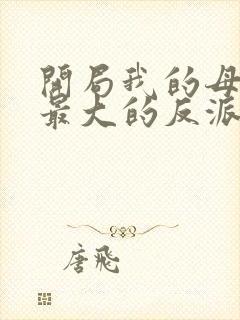 開局我的母
最大的反派
唐飛